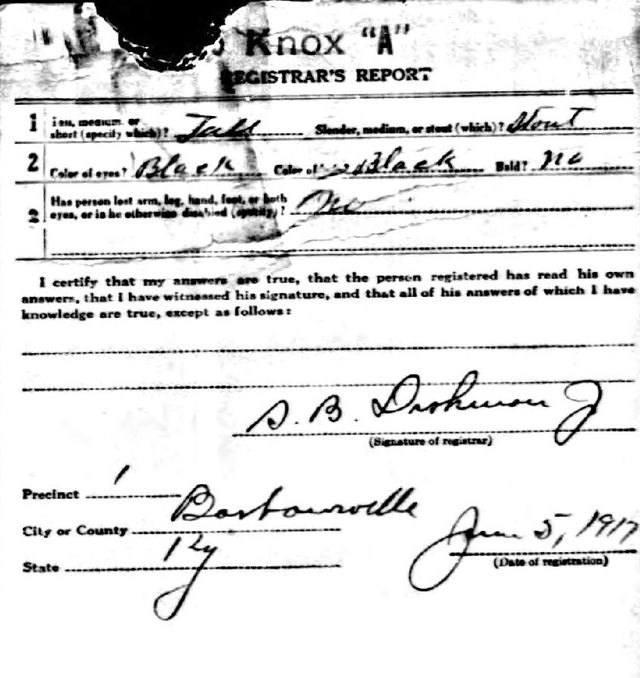 Knox "A"
REGISTRAR'S REPORT
1 medium, or short (specify which)? Tall Slender, medium, or stout (which)? Stout
2 Color of eyes? Black Color of Black Bald? No
Has person lost arm, leg, hand, foot, or both
eyes, or is he otherwise disabled (specify)? No
I certify that my answers are true, that the person registered has read his own
answers, that I have witnessed his signature, and that all of his answers of which I have
knowledge are true, except as follows:
S. B. Dishman J
(Signature of registrar)
Precinct 1
City or County Barbourville
State Ky
June 5, 1917
(Date of registration)